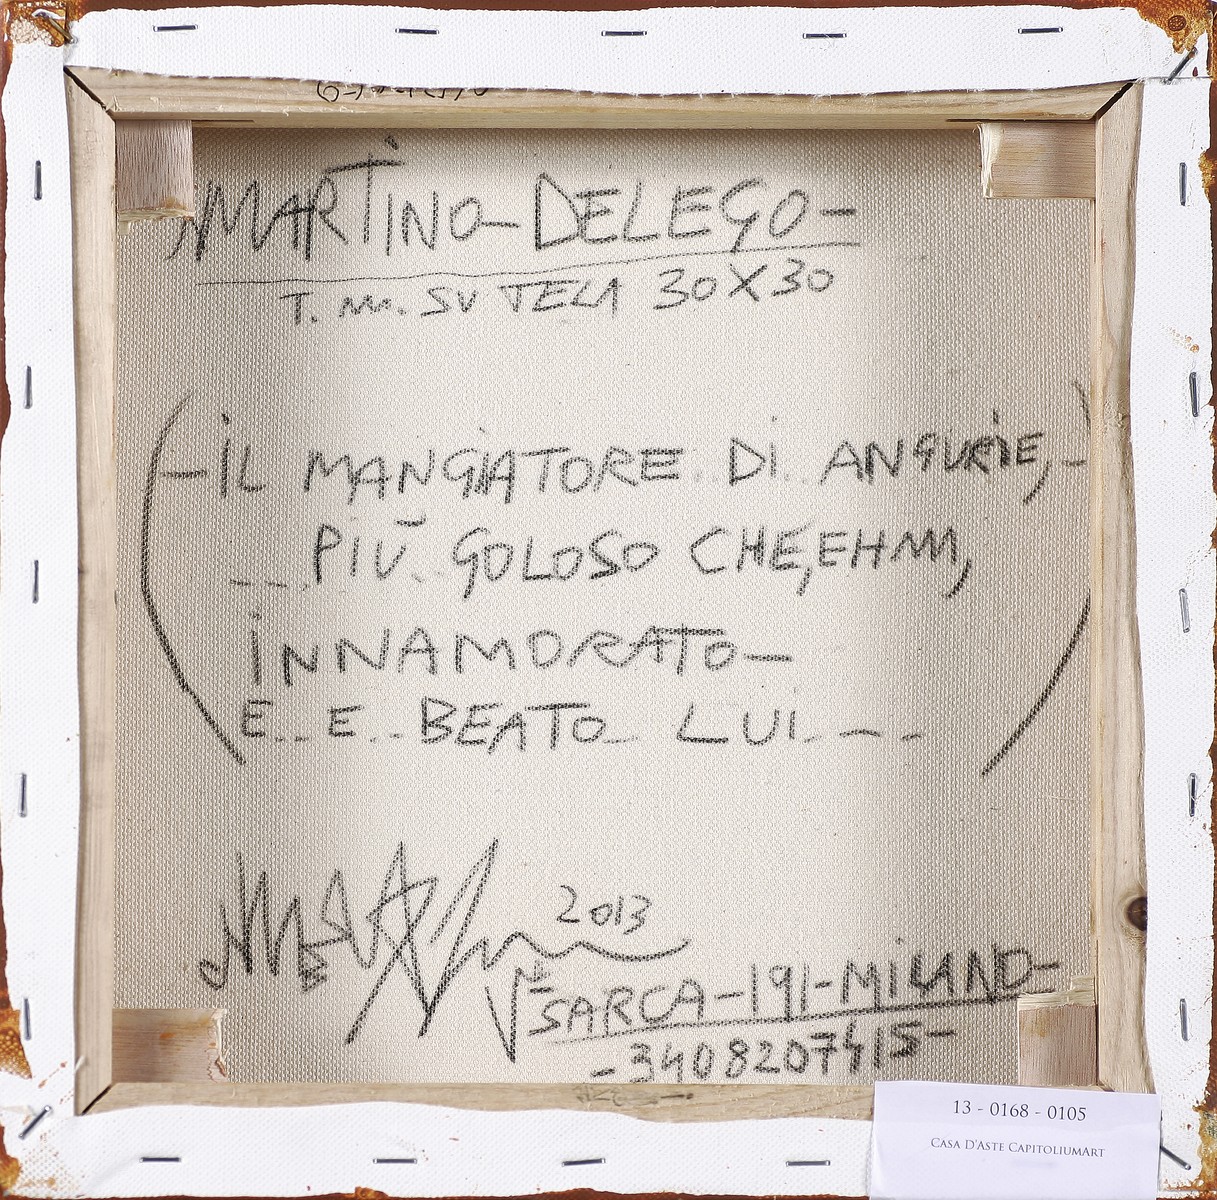 MARTINO-DELEGO-
T. M. SU TELA 30X30
(-IL MANGIATORE.. DI.. ANGURIE,-
... PIÙ.. GOLOSO CHE, EHMM,
INNAMORATO-
E... E... BEATO.. LUI.. - - -)
2013
SARCA-191-MILANO-
-3408207415-
13 - 0168 - 0105
CASA D'ASTE CAPITOLIUMART